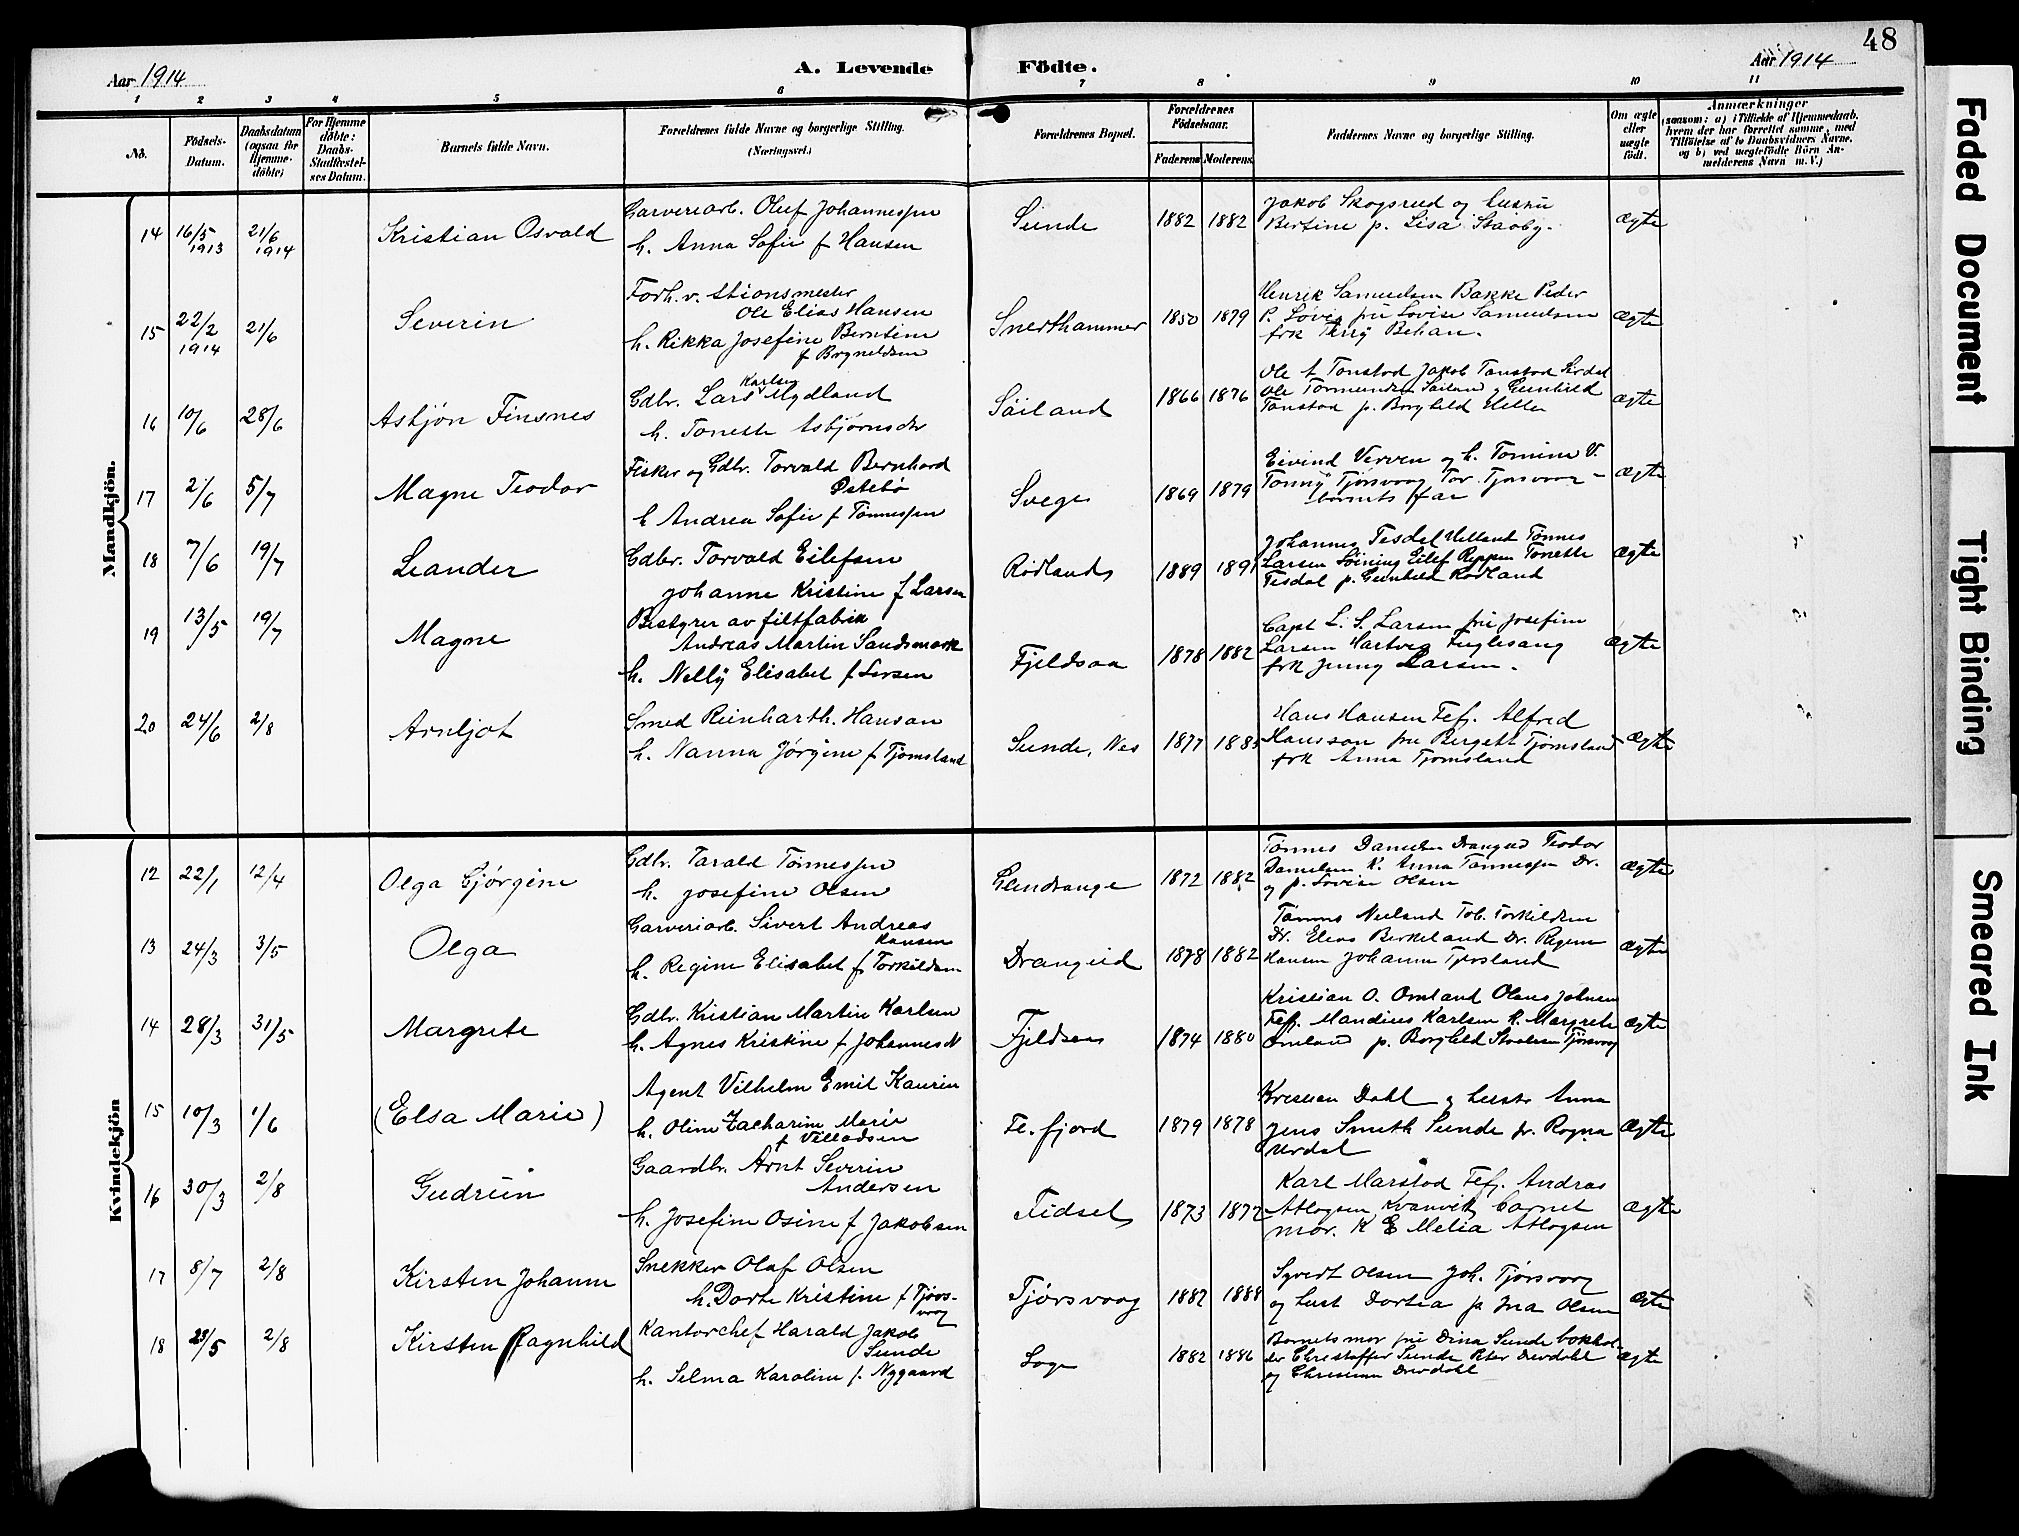 48
Aar 1914
A. Levende Födte.
Aar 1914
1 2 3 4 5 6 7 8 9 10 11
No.
Födsels-Datum.
Daabsdatum (ogsaa for Hjemme-döbte)
For Hjemme döbte: Daabs-Stadfæstel-ses Datum.
Barnets fulde Navn.
Forældrenes fulde Navne og borgerlige Stilling.
(Næringsvei.)
Forældrenes Bopæl.
Forældrenes Födselsaar.
Faderens Moderens
Faddernes Navne og borgerlige Stilling.
Om ægte eller uægte født.
Anmærkninger
(saasom: a) i Tilfælde af Hjemmedaab, hvem der har forrettet samme, med Tilföielse af to Daabsvidners Navne, og b) ved uægtefödte Börn Anmelderens Navn m. V.)
Mandkjön.
14 16/5 1913 21/6 1914 Kristian Osvald
Garveriarb. Oluf Johannessen
h. Anna Sofie f Hansen
Sunde 1882 1882
Jakob Skogsrud og hustru
Bertine p. Lisa Staaby.
Ægte
15 22/2 1914 21/6 Severin
Forh. v. stionsmester
Ole Elias Hansen
h. Rikka Josefine Berntine
f Brynildsen
1850 1879
Henrik Samuelsen Bakke Peder
P. Lövig fru Lovise Samuelsen
frk Behan.
Ægte
16 10/6 28/6 Asbjön Finsnes
Gdbr. Lars Karlsen Mydland
h. Tonette Asbjørnsdr
Söiland 1866 1876
Ole t Tonstad Jakob Tonstad Sirdal
Ole Tormundsen Söiland g Gunhild
Tonstad p. Borghild Helle
Ægte
17 2/6 5/7 Magne Teodor
Fisker og Gdbr. Torvald Bernhard
Östebö
h Andrea Sofie f Tönnessen
Svege 1869 1879
Eivind Verven og h. Tomine V.
Tonny Tjørsvaag Tor. Tjørsvaag -
barnets far
Ægte
18 7/6 19/7 Leander
Gdbr. Torvald Eilefsen
Johanne Kristine f Larsen
Rödland 1889 1891
Johannes Tesdal Helland Tönnes
Larsen Eilef Reppen Tonette
Tesdal p. Gunhild Rödland
Ægte
19 13/5 19/7 Magne
Bestyrer av filtfabrik
Andreas Martin Sandsmark
h. Nelly Elisabet f Larsen
Fjeldsaa 1878 1882
Capt L. S. Larsen fru Josefine
Larsen Hartvig Fuglesang
frk Jenny Larsen.
Ægte
20 24/6 2/8 Arnljot
Smed Reinharth. Hansan
h. Nanna Jörgine f Tjomsland
Sunde, Nes 1877 1885
Hans Hansen Fef. Alfred
Hansson fru Bergett Tjomsland
frk Anna Tjomsland
Ægte
Kvindekjön
12 22/1 12/4 Olga Gjörgine
Gdbr. Tarald Tönnessen
h. Josefine Olsen
Glendrange 1872 1882
Tönnes Danielsen Drangeid Teodor
Danielsen K. Anna Tönnessen Dr.
og p. Lovise Olsen
Ægte
13 24/3 3/5 Olga
Garveriarb. Sivert Andreas
Hansen
h. Regine Elisabet f Torkildsen
Drangeid 1878 1882
Tönnes Neeland Tob. Torkildsen
Dr. Elias Birkeland Dr. Regine
Hansen Johanne Tjorsland
Ægte
14 28/3 31/5 Margrete
Gdbr. Kristian Martin Karlsen
h. Agnes Kristine f Johannesd
Fjeldsaa 1874 1880
Kristian O. Omland Olaus Johnsen
Fef. Mandius Karlsen K. Margrete
Omland p. Borghild Tjörsvaag
Ægte
15 10/3 1/6 (Elsa Marie)
Agent Vilhelm Emil Kaurin
h. Oline Zacharine Marie
f Villadsen
Fe. fjord 1879 1878
Kristian Dahl og hustr Anna
Jens Smith Sunde fr. Ragna
Urdal
Ægte
16 30/3 2/8 Gudrun
Gaardbr. Arnt Severin
Andersen
h. Josefine Osine f Jakobsen
Fidsel 1873 1872
Karl Marstad Fef. Andras
Atlogsen Kvanvik barnet
mor. K E Melia Atlogsen
Ægte
17 8/7 2/8 Kirsten Johanne
Snekker Olaf Olsen
h. Dorte Kristine f Tjörs-
vaag
Tjörsvaag 1882 1888
Syvert Olsen Joh. Tjörsvaag
og hust Dortea p Ina Olsen
Ægte
18 23/5 2/8 Kirsten Ragnhild
Kantorchef Harald Jakob
Sunde
h. Selma Karoline f. Nygaard
Loge 1882 1886
Barnets mor fru Dina Sunde bokhol-
der Christoffer Sunde Peter Drivdahl
og Christian Drivdahl
Ægte
Faded Document
Tight Binding
Smeared Ink